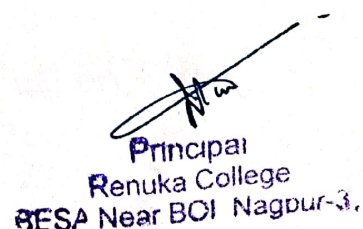 Principal
Renuka College
BESA Near BOI Nagpur-3.